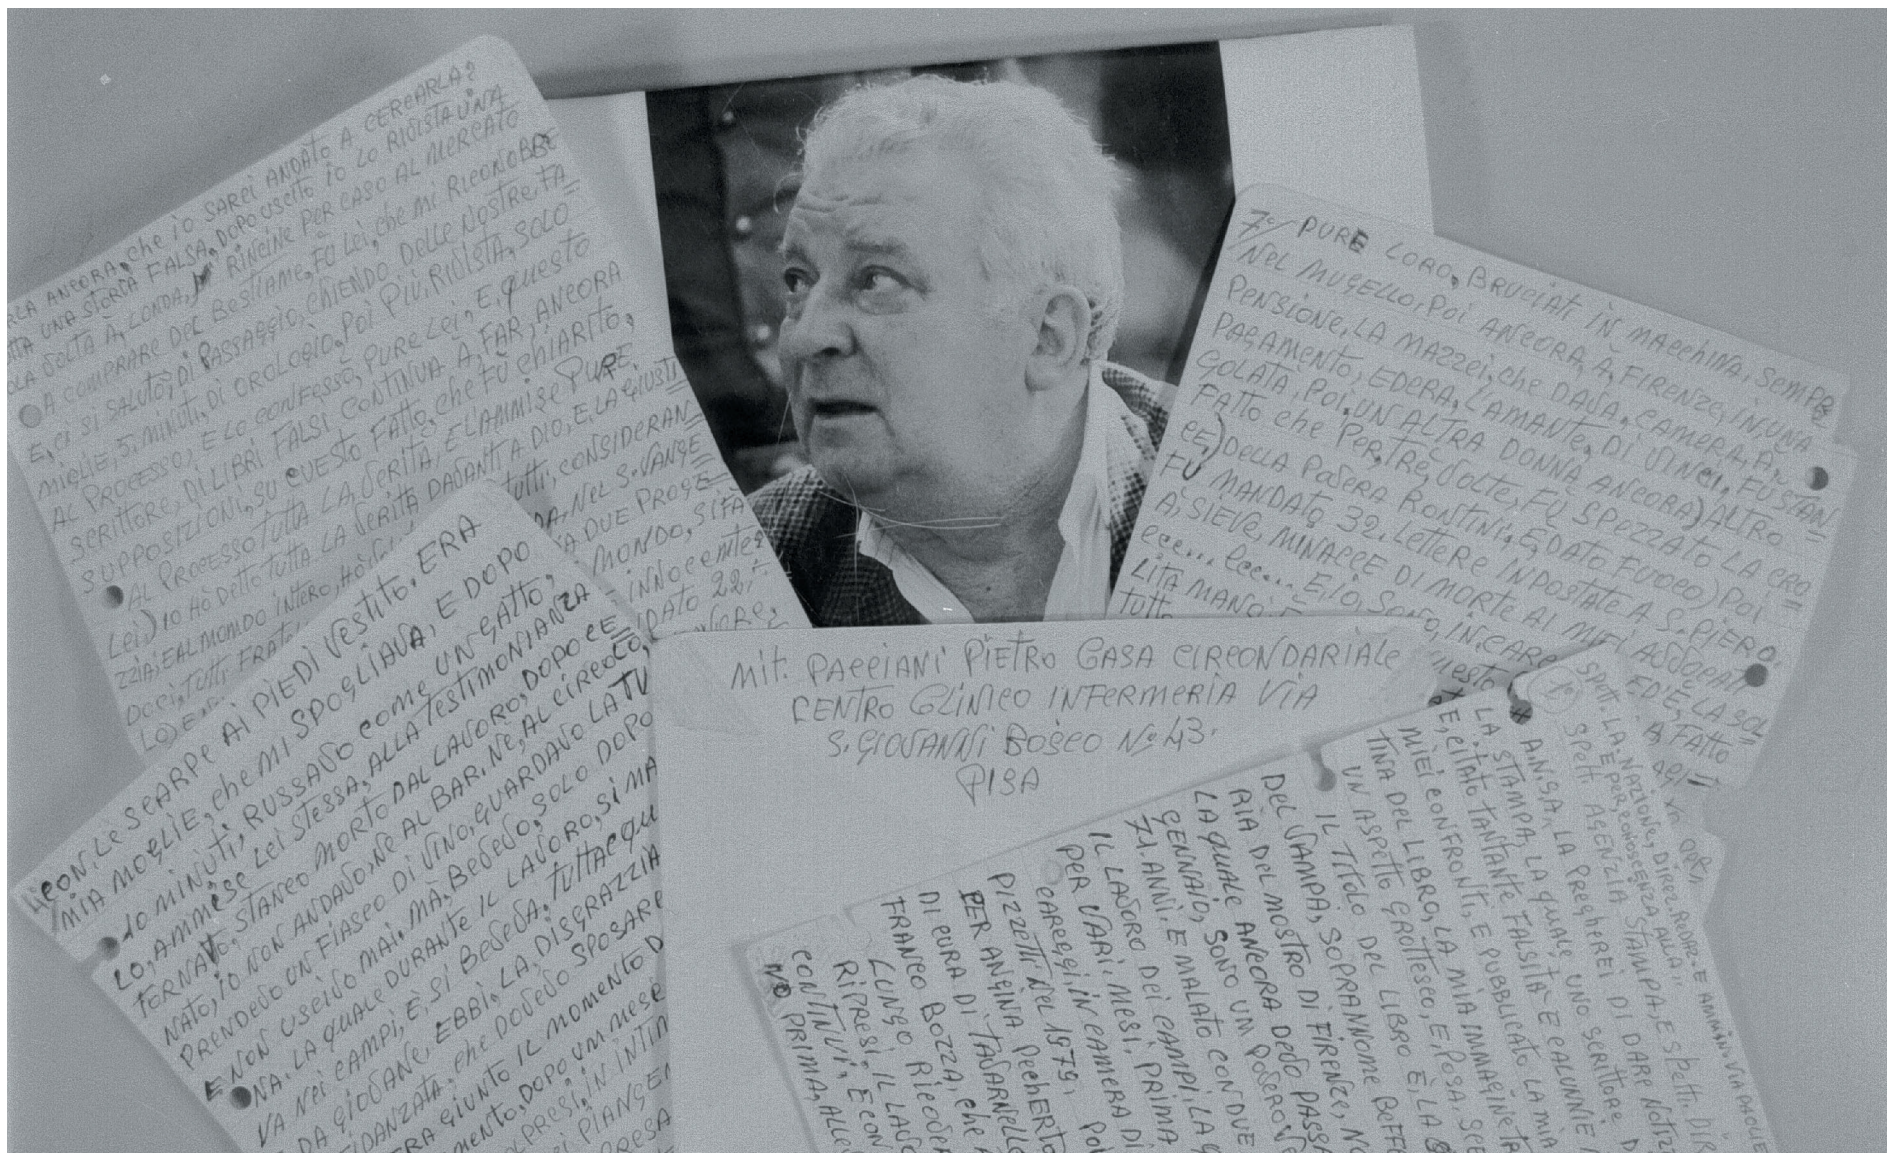 RLA ANCORA, che io SAREI ANDATO A CERCARLA?
TTA UNA STORIA FALSA, DOPO USCITO IO LO RIVISTA UNA
OLA VOLTA A, LONDA, RINCINE PER CASO AL MERCATO
A COMPRARE DEL BESTIAME, FÙ LEI, che MI RICONOBBE
E, CI SI SALUTÒ, DI PASSAGGIO, CHIENDO DELLE NOSTRE, FA=
MIGLIE, 5, MINUTI, DI OROLOGIO, POI PIÙ, RIVISTA, SOLO
AL PROCESSO, E LO CONFESSÒ, PURE LEI, E, QUESTO
SCRITTORE, DI LIBRI FALSI, CONTINUA A, FAR, ANCORA
SUPPOSIZIONI, SU QUESTO FATTO, che FÙ CHIARITO,
AL PROCESSO TUTTA LA VERITÀ, E L'AMMISE PURE,
LEI,) IO HÒ DETTO TUTTA LA VERITÀ DAVANTI A DIO, E, LA GIUSTI=
ZZIA, E AL MONDO INTERO, HÒ
DOCI, TUTTI FRATE
TUTTI, CONSIDERAN
NEL S. VANGE
A DUE PROCE=
MONDO, SI FA
INNOCENTE?
7=/ PURE LORO, BRUCIATI IN MACCHINA, SEMPRE
NEL MUGELLO, POI ANCORA, A, FIRENZE, IN, UNA
PENSIONE, LA MAZZEI, che DAVA, CAMERA, A,
PAGAMENTO, EDERA, L'AMANTE, DI VINCI, FÙ STAN=
GOLATA, POI, UN ALTRA DONNA ANCORA) ALTRO
FATTO che PER, TRE, VOLTE, FÙ SPEZZATO LA CRO=
CE,) DELLA POVERA RONTINI, E, DATO FUOCO) POI
FÙ MANDATO 32. LETTERE INPOSTATE A S. PIERO.
A, SIEVE, MINACCE DI MORTE AI MIEI AVVOCATI
ecc... ecc... E, IO, SONO, IN CARCE ED'È, LA SOL=
LITA MANO,
TUTTO
4= CON, LE SCARPE AI PIEDI VESTITO, ERA
MIA MOGLIE, che MI SPOGLIAVA, E DOPO
10 MINUTI, RUSSAVO COME UN GATTO,
LO, AMMISE LEI STESSA, ALLA TESTIMONIANZA
TORNAVO, STANCO MORTO DAL LAVORO, DOPO CE=
NATO, IO NON ANDAVO, NE AL BAR, NE, AL CIRCOLO,
PRENDEVO UN FIASCO DI VINO, GUARDAVO LA TV
E NON USCIVO MAI, MÀ, BEVEVO, SOLO DOPO
NA. LA QUALE DURANTE IL LAVORO, SI MA
VA NEI CAMPI, E, SI BEVEVA, TUTTACQU
DA GIOVANE, EBBI, LA, DISGRAZZIA
FIDANZATA, che DOVEVO SPOSARE
ERA GIUNTO IL MOMENTO D
MENTO, DOPO UM MESE
PRESI, IN INTIM
PIANGE
Mit. PACCIANI PIETRO CASA CIRCONDARIALE
CENTRO CLINICO INFERMERIA VIA
S. GIOVANNI BOSCO N° 43.
PISA
SPETT. LA NAZIONE, DIREZ. REDAZ. E AMMIN. VIA PAOLIE
E PER, CONOSCENZA ALLA: STAMPA, E SPETT. DIR
1°) SPETT AGENZIA
ANSA, LA PREGHEREI DI DARE NOTIZ
LA STAMPA, LA QUALE, UNO SCRITTORE D
E, CITATO TANTANTE FALSITÀ E CALUNNIE
MIEI CONFRONTI, E PUBBLICATO LA MIA
TINA DEL LIBRO, LA MIA IMMAGINE TA
UN ASPETTO GROTTESCO, E, POSA, SEE
IL TITOLO DEL LIBRO È LA
DEL VAMPA, SOPRANNOME BEFFE
RIA DEL MOSTRO DI FIRENZE, NO
LA QUALE ANCORA DEVO PASSA
GENNAIO, SONO UM POVERO VE
71. ANNI. E MALATO CON DUE
IL LAVORO DEI CAMPI, LA Q
PER VARI, MESI, PRIMA
CAREGGI, IN CAMERA DI
PIZZETTI, NEL 1979, POI
PER ANGINA PECHERTO
DI CURA DI TAVARNELLE
FRANCO BOZZA, che
LUNGO RICOVER
RIPRESI, IL LAVO
CONTINUI, E CON
NO PRIMA, ALLE